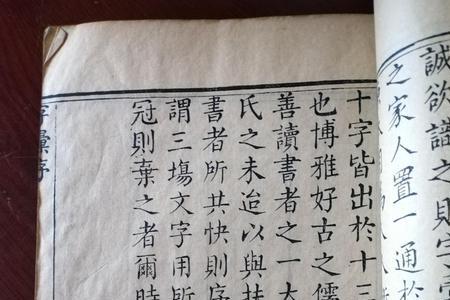 誠欲之則字
之家人置一通於
十字皆出於十三
也博雅好古之儒
善讀書者之一大
氏之未迨以與
書者所共快則序
謂三塲文字用所
冠則棄之者爾時
字彙序